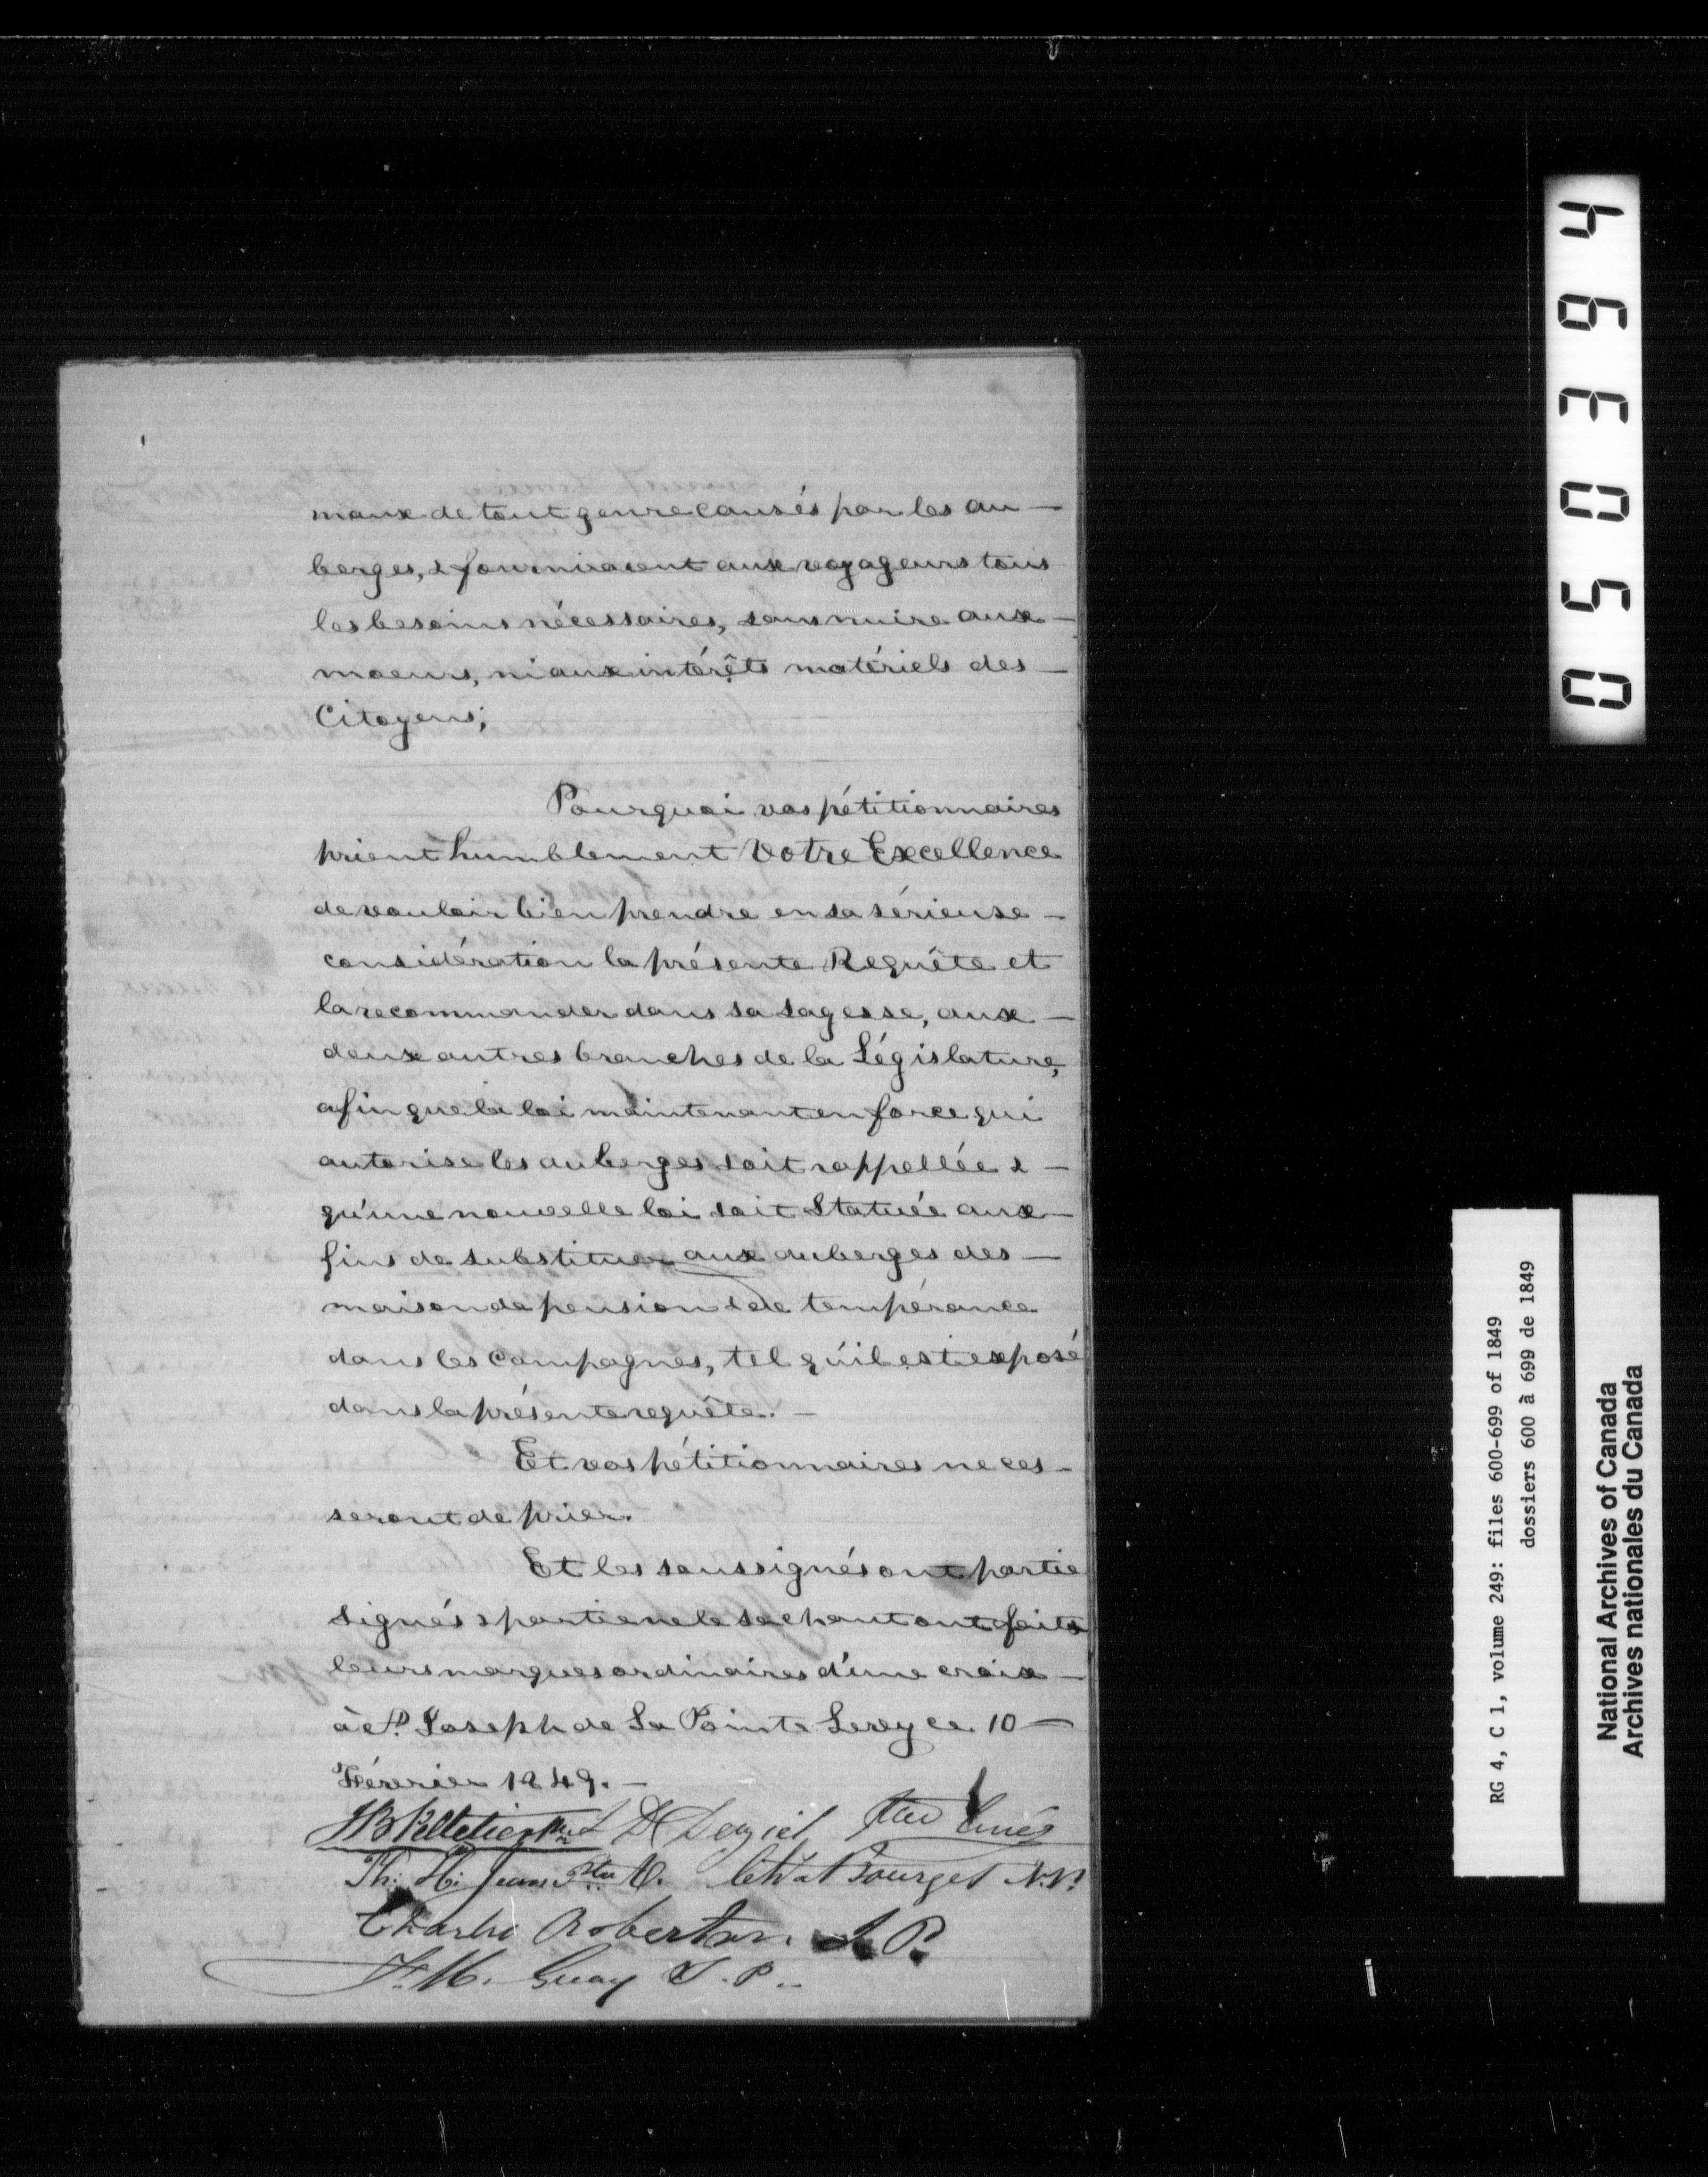 maux de tout genre causés par les au —
berges, & fourniraient aux voyageurs tous
les besoins nécessaires, sans nuire aux —
moeurs, ni aux intérêts matériels des —
Citoyens;
Pourquoi vos pétitionnaires
prient humblement Votre Excellence
de vouloir bien prendre en sa sérieuse —
considération la présente Requête et
la recommander dans sa sagesse, aux —
deux autres branches de la Législature,
afin que la loi maintenant en force qui
autorise les auberges soit rappellée & —
qu'une nouvelle loi soit Statuée aux —
fins de substituer aux auberges des —
maison de pension & de tempérance
dans les Campagnes, tel qu'il est exposé
dans la présente requête. —
Et vos pétitionnaires ne ces —
seront de prier.
Et les soussignés ont partie
signés & partie ne le sachant ont faits
leurs marques ordinaires d'une croix —
à St. Joseph de La Pointe Levy ce 10 —
Février 1849. —
JB Pelletier D Deziel Curé
Th: H: Jean Bourget N.P.
Charles Robertson. J.P.
F. M. Guay J.P.
050394
RG 4, C 1, volume 249: files 600-699 of 1849
dossiers 600 à 699 de 1849
National Archives of Canada
Archives nationales du Canada